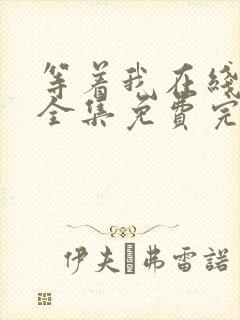 等着我在线
全集免费完
伊夫 弗雷諾